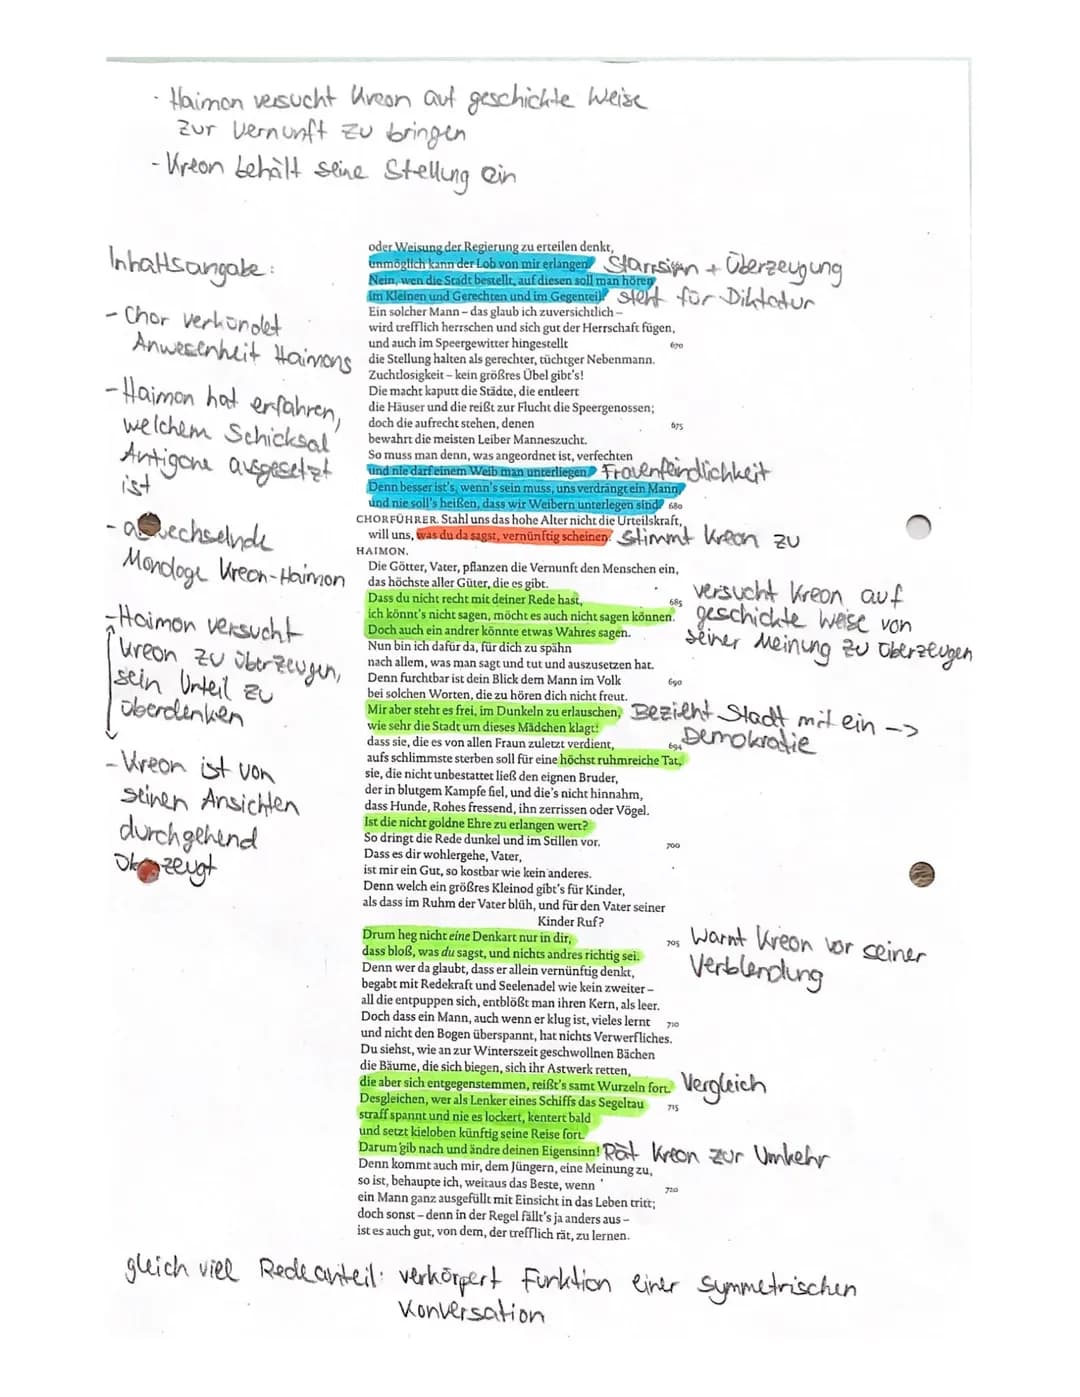 · Haimon versucht Kreon auf geschickte Weise
zur Vernunft zu bringen
- Kreon behält seine Stellung ein
Inhaltsangabe:
- Chor verkündet
Anwesenheit Haimons
- Haimon hat erfahren,
welchem Schicksal
Antigone ausgesetzt
ist
- abwechselnde
Monologe Kreon-Haimon
- Haimon versucht
Kreon zu überzeugen,
sein Urteil zu
überdenken
- Kreon ist von
seinen Ansichten
durchgehend
überzeugt
oder Weisung der Regierung zu erteilen denkt,
unmöglich kann der Lob von mir erlangen. Starrsinn + Überzeugung
Nein, wen die Stadt bestellt, auf diesen soll man hören
im Kleinen und Gerechten und im Gegenteil! steht für Diktatur
Ein solcher Mann – das glaub ich zuversichtlich –
wird trefflich herrschen und sich gut der Herrschaft fügen,
und auch im Speergewitter hingestellt 670
die Stellung halten als gerechter, tüchtger Nebenmann.
Zuchtlosigkeit – kein größres Übel gibt's!
Die macht kaputt die Städte, die entleert
die Häuser und die reißt zur Flucht die Speergenossen;
doch die aufrecht stehen, denen 675
bewahrt die meisten Leiber Manneszucht.
So muss man denn, was angeordnet ist, verfechten
und nie darf einem Weib man unterliegen. Frauenfeindlichkeit
Denn besser ist's, wenn's sein muss, uns verdrängt ein Mann,
und nie soll's heißen, dass wir Weibern unterlegen sind! 680
CHORFÜHRER. Stahl uns das hohe Alter nicht die Urteilskraft,
will uns, was du da sagst, vernünftig scheinen. Stimmt Kreon zu
HAIMON.
Die Götter, Vater, pflanzen die Vernunft den Menschen ein,
das höchste aller Güter, die es gibt.
Dass du nicht recht mit deiner Rede hast, 685
ich könnt's nicht sagen, möcht es auch nicht sagen können.
Doch auch ein andrer könnte etwas Wahres sagen.
versucht Kreon auf
geschickte Weise von
seiner Meinung zu überzeugen
Nun bin ich dafür da, für dich zu spähn
nach allem, was man sagt und tut und auszusetzen hat.
Denn furchtbar ist dein Blick dem Mann im Volk 690
bei solchen Worten, die zu hören dich nicht freut.
Mir aber steht es frei, im Dunkeln zu erlauschen, Bezieht Stadt mit ein -->
wie sehr die Stadt um dieses Mädchen klagt: Demokratie
dass sie, die es von allen Fraun zuletzt verdient, 694
aufs schlimmste sterben soll für eine höchst ruhmreiche Tat,
sie, die nicht unbestattet ließ den eignen Bruder,
der in blutgem Kampfe fiel, und die's nicht hinnahm,
dass Hunde, Rohes fressend, ihn zerrissen oder Vögel.
Ist die nicht goldne Ehre zu erlangen wert?
So dringt die Rede dunkel und im Stillen vor. 700
Dass es dir wohlergehe, Vater,
ist mir ein Gut, so kostbar wie kein anderes.
Denn welch ein größres Kleinod gibt's für Kinder,
als dass im Ruhm der Vater blüh, und für den Vater seiner
Kinder Ruf?
Drum heg nicht eine Denkart nur in dir, 705
dass bloß, was du sagst, und nichts andres richtig sei.
Warnt Kreon vor seiner
Verblendung
Denn wer da glaubt, dass er allein vernünftig denkt,
begabt mit Redekraft und Seelenadel wie kein zweiter –
all die entpuppen sich, entblößt man ihren Kern, als leer.
Doch dass ein Mann, auch wenn er klug ist, vieles lernt 710
und nicht den Bogen überspannt, hat nichts Verwerfliches.
Du siehst, wie an zur Winterszeit geschwollnen Bächen
die Bäume, die sich biegen, sich ihr Astwerk retten,
die aber sich entgegenstemmen, reißt's samt Wurzeln fort. Vergleich
Desgleichen, wer als Lenker eines Schiffs das Segeltau 715
straff spannt und nie es lockert, kentert bald
und setzt kieloben künftig seine Reise fort.
Darum gib nach und ändre deinen Eigensinn! Rät Kreon zur Umkehr
Denn kommt auch mir, dem Jüngern, eine Meinung zu,
so ist, behaupte ich, weitaus das Beste, wenn 720
ein Mann ganz ausgefüllt mit Einsicht in das Leben tritt;
doch sonst – denn in der Regel fällt's ja anders aus –
ist es auch gut, von dem, der trefflich rät, zu lernen.
gleich viel Redeanteil: verkörpert Funktion einer symmetrischen
Konversation